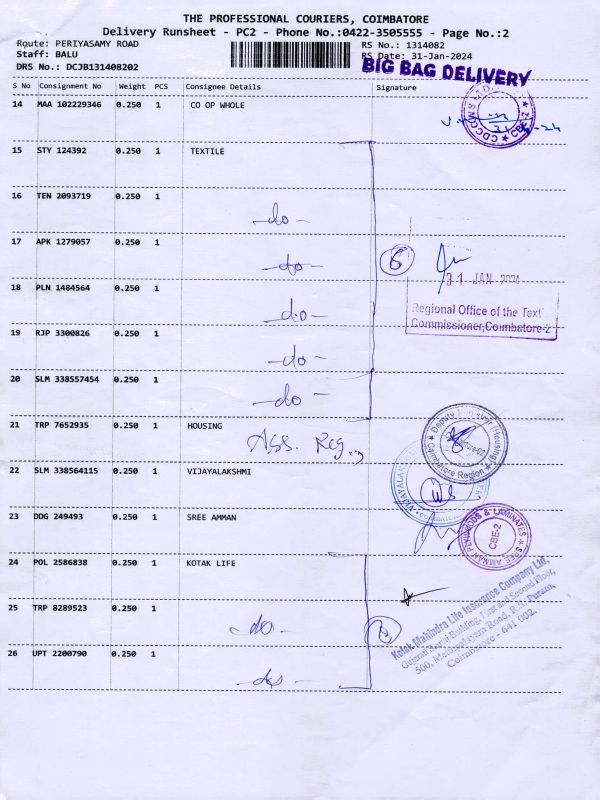 THE PROFESSIONAL COURIERS, COIMBATORE
Delivery Runsheet - PC2 - Phone No.:0422-3505555 - Page No.:2
Route: PERIYASAMY ROAD
Staff: BALU
DRS No.: DCJB131408202
RS No.: 1314082
RS Date: 31-Jan-2024
BIG BAG DELIVERY
S No Consignment No Weight PCS Consignee Details Signature
14 MAA 102229346 0.250 1 CO OP WHOLE
CBE-2
15 STY 124392 0.250 1 TEXTILE
16 TEN 2093719 0.250 1
-do-
17 APK 1279057 0.250 1
-do-
6
31 JAN 2024
18 PLN 1484564 0.250 1
-do-
Regional Office of the Text
Commissioner,Coimbatore-2
19 RJP 3300826 0.250 1
-do-
20 SLM 338557454 0.250 1
-do-
21 TRP 7652935 0.250 1 HOUSING
Ass. Reg
Deputy Registrar (Housing)
Coimbatore Region
22 SLM 338564115 0.250 1 VIJAYALAKSHMI
23 DDG 249493 0.250 1 SREE AMMAN
SREE AMMAN PLYWOODS & LAMINATES
CBE-2
24 POL 2586838 0.250 1 KOTAK LIFE
25 TRP 8289523 0.250 1
-do-
Kotak Mahindra Life Insurance Company Ltd,
Building, First and Second Floor,
500, Mettupalayam Road, R.S. Puram,
Coimbatore - 641 002.
26 UPT 2200790 0.250 1
-do-